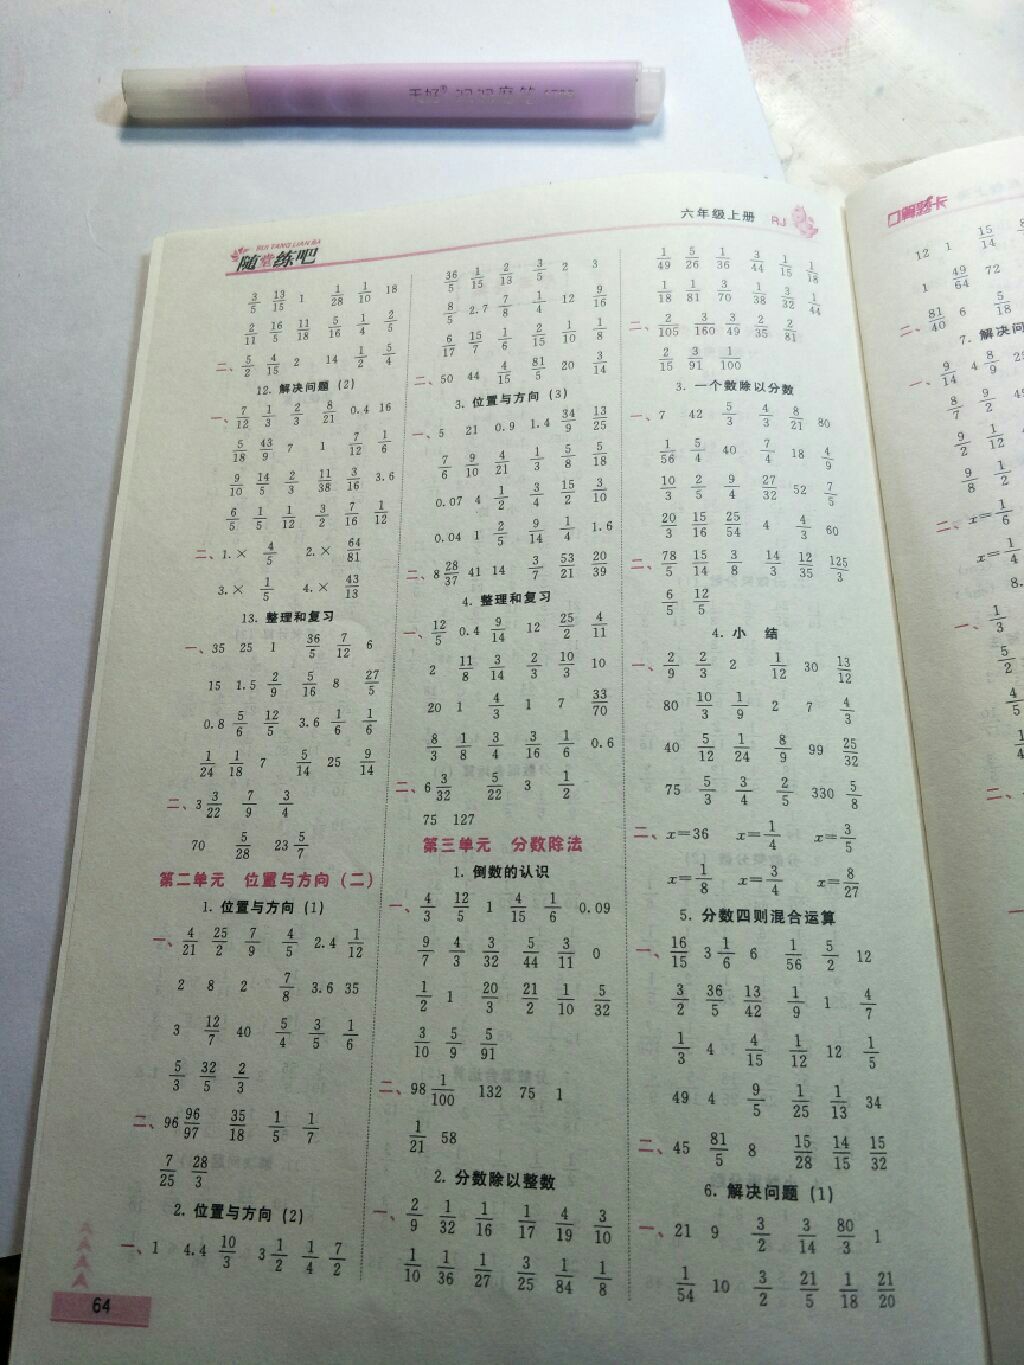 六年级上册 RJ
SUI TANG LIAN BA
随堂练吧
3/5 13/15 1 1/28 1/10 18
2/11 16/5 11/18 5/16 1/4 2/5
二、5/2 4/15 2 14 1/2 5/4
12. 解决问题(2)
一、7/12 1/3 2/3 8/21 0.4 16
5/18 43/9 7 1 7/12 1/6
9/10 14/5 2/3 11/38 3/16 3.6
6/5 1/5 1/12 3/2 7/16 1/12
二、1.× 4/5 2.× 64/81
3.× 1/5 4.× 43/13
13. 整理和复习
一、35 25 1 36/5 7/12 6
15 1.5 2/9 5/16 8 27/5
0.8 5/6 12/5 3.6 1/6 1/6
1/24 1/18 7 5/14 25 9/14
二、3 3/22 7/9 3/4
70 5/28 23 5/7
第二单元 位置与方向(二)
1. 位置与方向(1)
一、4/21 25/2 7/9 4/5 2.4 1/12
2 8 2 7/8 3.6 35
3 12/7 40 5/4 3/5 1/6
5/3 32/5 2/3
二、96 96/97 35/18 1/5 1/7
7/25 28/3
2. 位置与方向(2)
一、1 4.4 10/3 3 1/2 1/4 7/2
64
36/5 1/15 2/13 3/5 2 3
8/5 2.7 7/8 1/4 12 9/16
6/17 15/7 1/6 2/15 1/10 1/8
二、50 44 4/15 81/5 20 3/14
3. 位置与方向(3)
一、5 21 0.9 1.4 34/9 13/25
7/6 9/10 4/21 1/3 5/8 5/18
0.07 4 1/2 3/4 15/2 3/10
0.04 1 2/5 9/14 1/4 1.6
二、8 28/37 41 14 3/7 53/21 20/39
4. 整理和复习
一、12/5 0.4 9/14 12 25/2 4/11
2 11/8 3/14 2/3 10/3 10
20 1 4/3 1 7 33/70
8/3 1/8 3/4 3/16 1/6 0.6
二、6 3/32 5/22 3 1/2
75 127
第三单元 分数除法
1. 倒数的认识
一、4/3 12/5 1 4/15 1/6 0.09
9/7 4/3 3/32 5/44 3/11 0
1/2 1 20/3 21/2 1/10 5/32
3/10 5/9 5/91
二、98 1/100 132 75 1
1/21 58
2. 分数除以整数
一、2/9 1/32 1/16 1/17 4/19 3/10
1/10 1/36 1/27 3/25 1/84 1/8
1/49 5/26 1/36 3/44 1/15 1/18
1/18 1/81 3/70 1/38 3/32 1/44
二、2/105 3/160 3/49 2/35 2/81
2/15 3/91 1/100
3. 一个数除以分数
一、7 42 5/3 4/3 8/21 80
1/56 5/4 40 7/4 18 4/9
10/3 2/5 9/4 27/32 52 7/5
20/3 15/16 25/54 4 4/3 60
二、78/5 15/14 3/8 14/3 12/35 125/3
6/5 12/5
4. 小 结
一、2/9 2/3 2 1/12 30 13/12
80 10/3 1/9 2 7 4/3
40 5/12 1/24 8/9 99 25/32
75 5/3 3/4 2/5 330 5/8
二、x=36 x=1/4 x=3/5
x=1/8 x=3/4 x=8/27
5. 分数四则混合运算
一、16/15 3 1/6 6 1/56 5/2 12
3/2 36/5 13/42 1/9 1 4/7
1/3 4 4/15 1/12 12 1/5
49 4 9/5 1/25 1/13 34
二、45 81/5 8 15/28 14/15 15/32
6. 解决问题(1)
一、21 9 3/2 3/14 80/3 1
1/54 10 3/2 21/5 1/18 21/20
12 1 15/14
1 49/64 72
二、81/40 6 5/18
7. 解决问
一、9/14 4 8/9
8/7 9/2
9/2 1/12
9/8 1/2
二、x=1/6
x=1/4
8.
一、1/3
5/2
4/5
1/4
二、